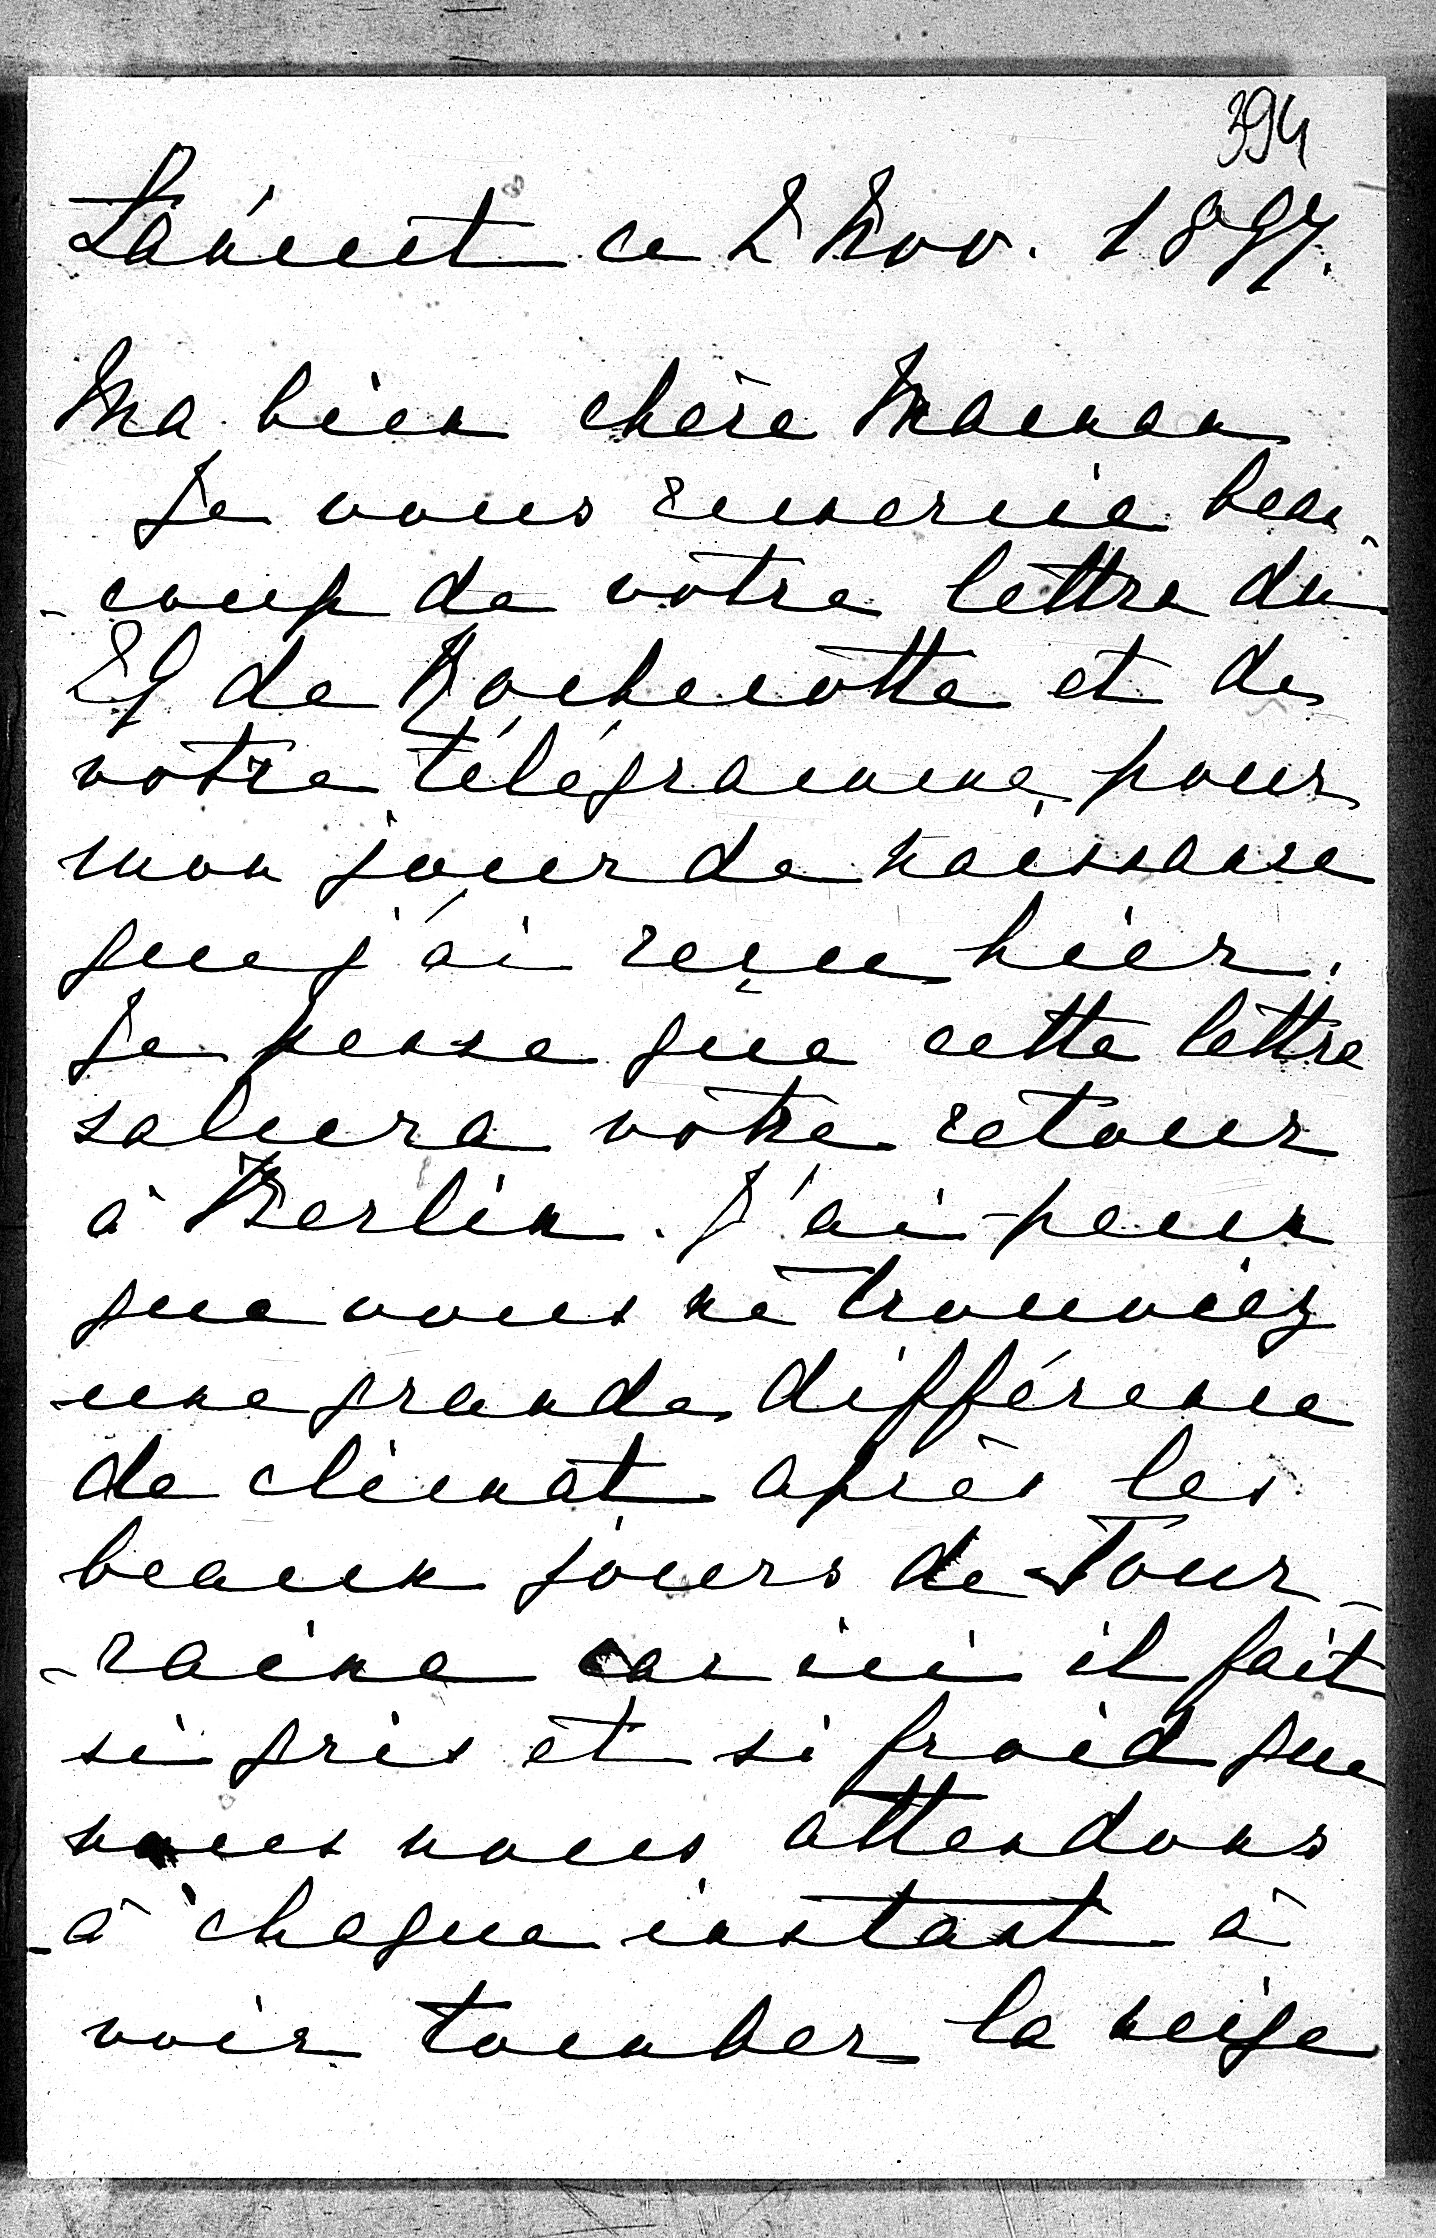 394
Łańcut ce 2 Nov. 1897.
Ma bien chère Maman
Je vous remercie beau-
-coup de votre lettre du
29 de Rochecotte et de
votre télégramme pour
mon jour de naissance
que j'ai reçu hier.
Je pense que cette lettre
saluera votre retour
à Berlin. J'ai peur
que vous ne trouviez
une grande différence
de climat après les
beaux jours de Tour-
-raine car ici il fait
si gris et si froid que
nous nous attendons
à chaque instant à
voir tomber la neige